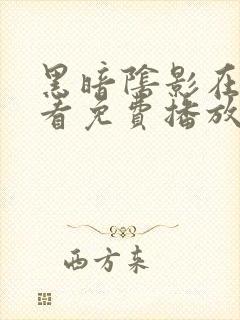 黑暗阴影在
看免费播放
西方来